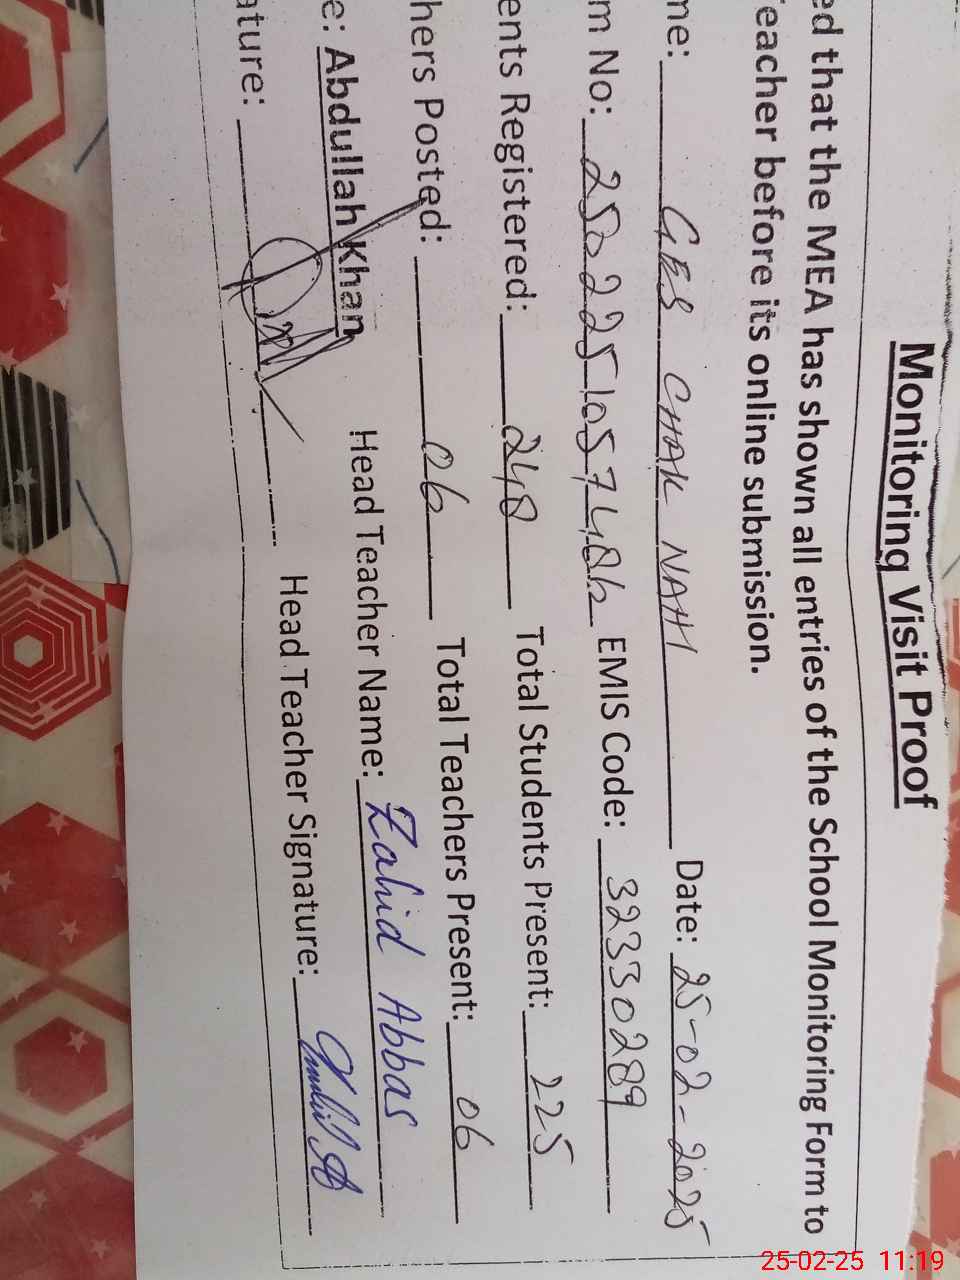 Monitoring Visit Proof
ed that the MEA has shown all entries of the School Monitoring Form to
Teacher before its online submission.
me: GES CHAK NAHI Date: 25-02-2025
m No: EMIS Code: 32330289
ents Registered: 248 Total Students Present: 225
hers Posted: 06 Total Teachers Present: 06
e: Abdullah Khan Head Teacher Name: Zahid Abbas
ature: Head Teacher Signature:
25-02-25 11:19